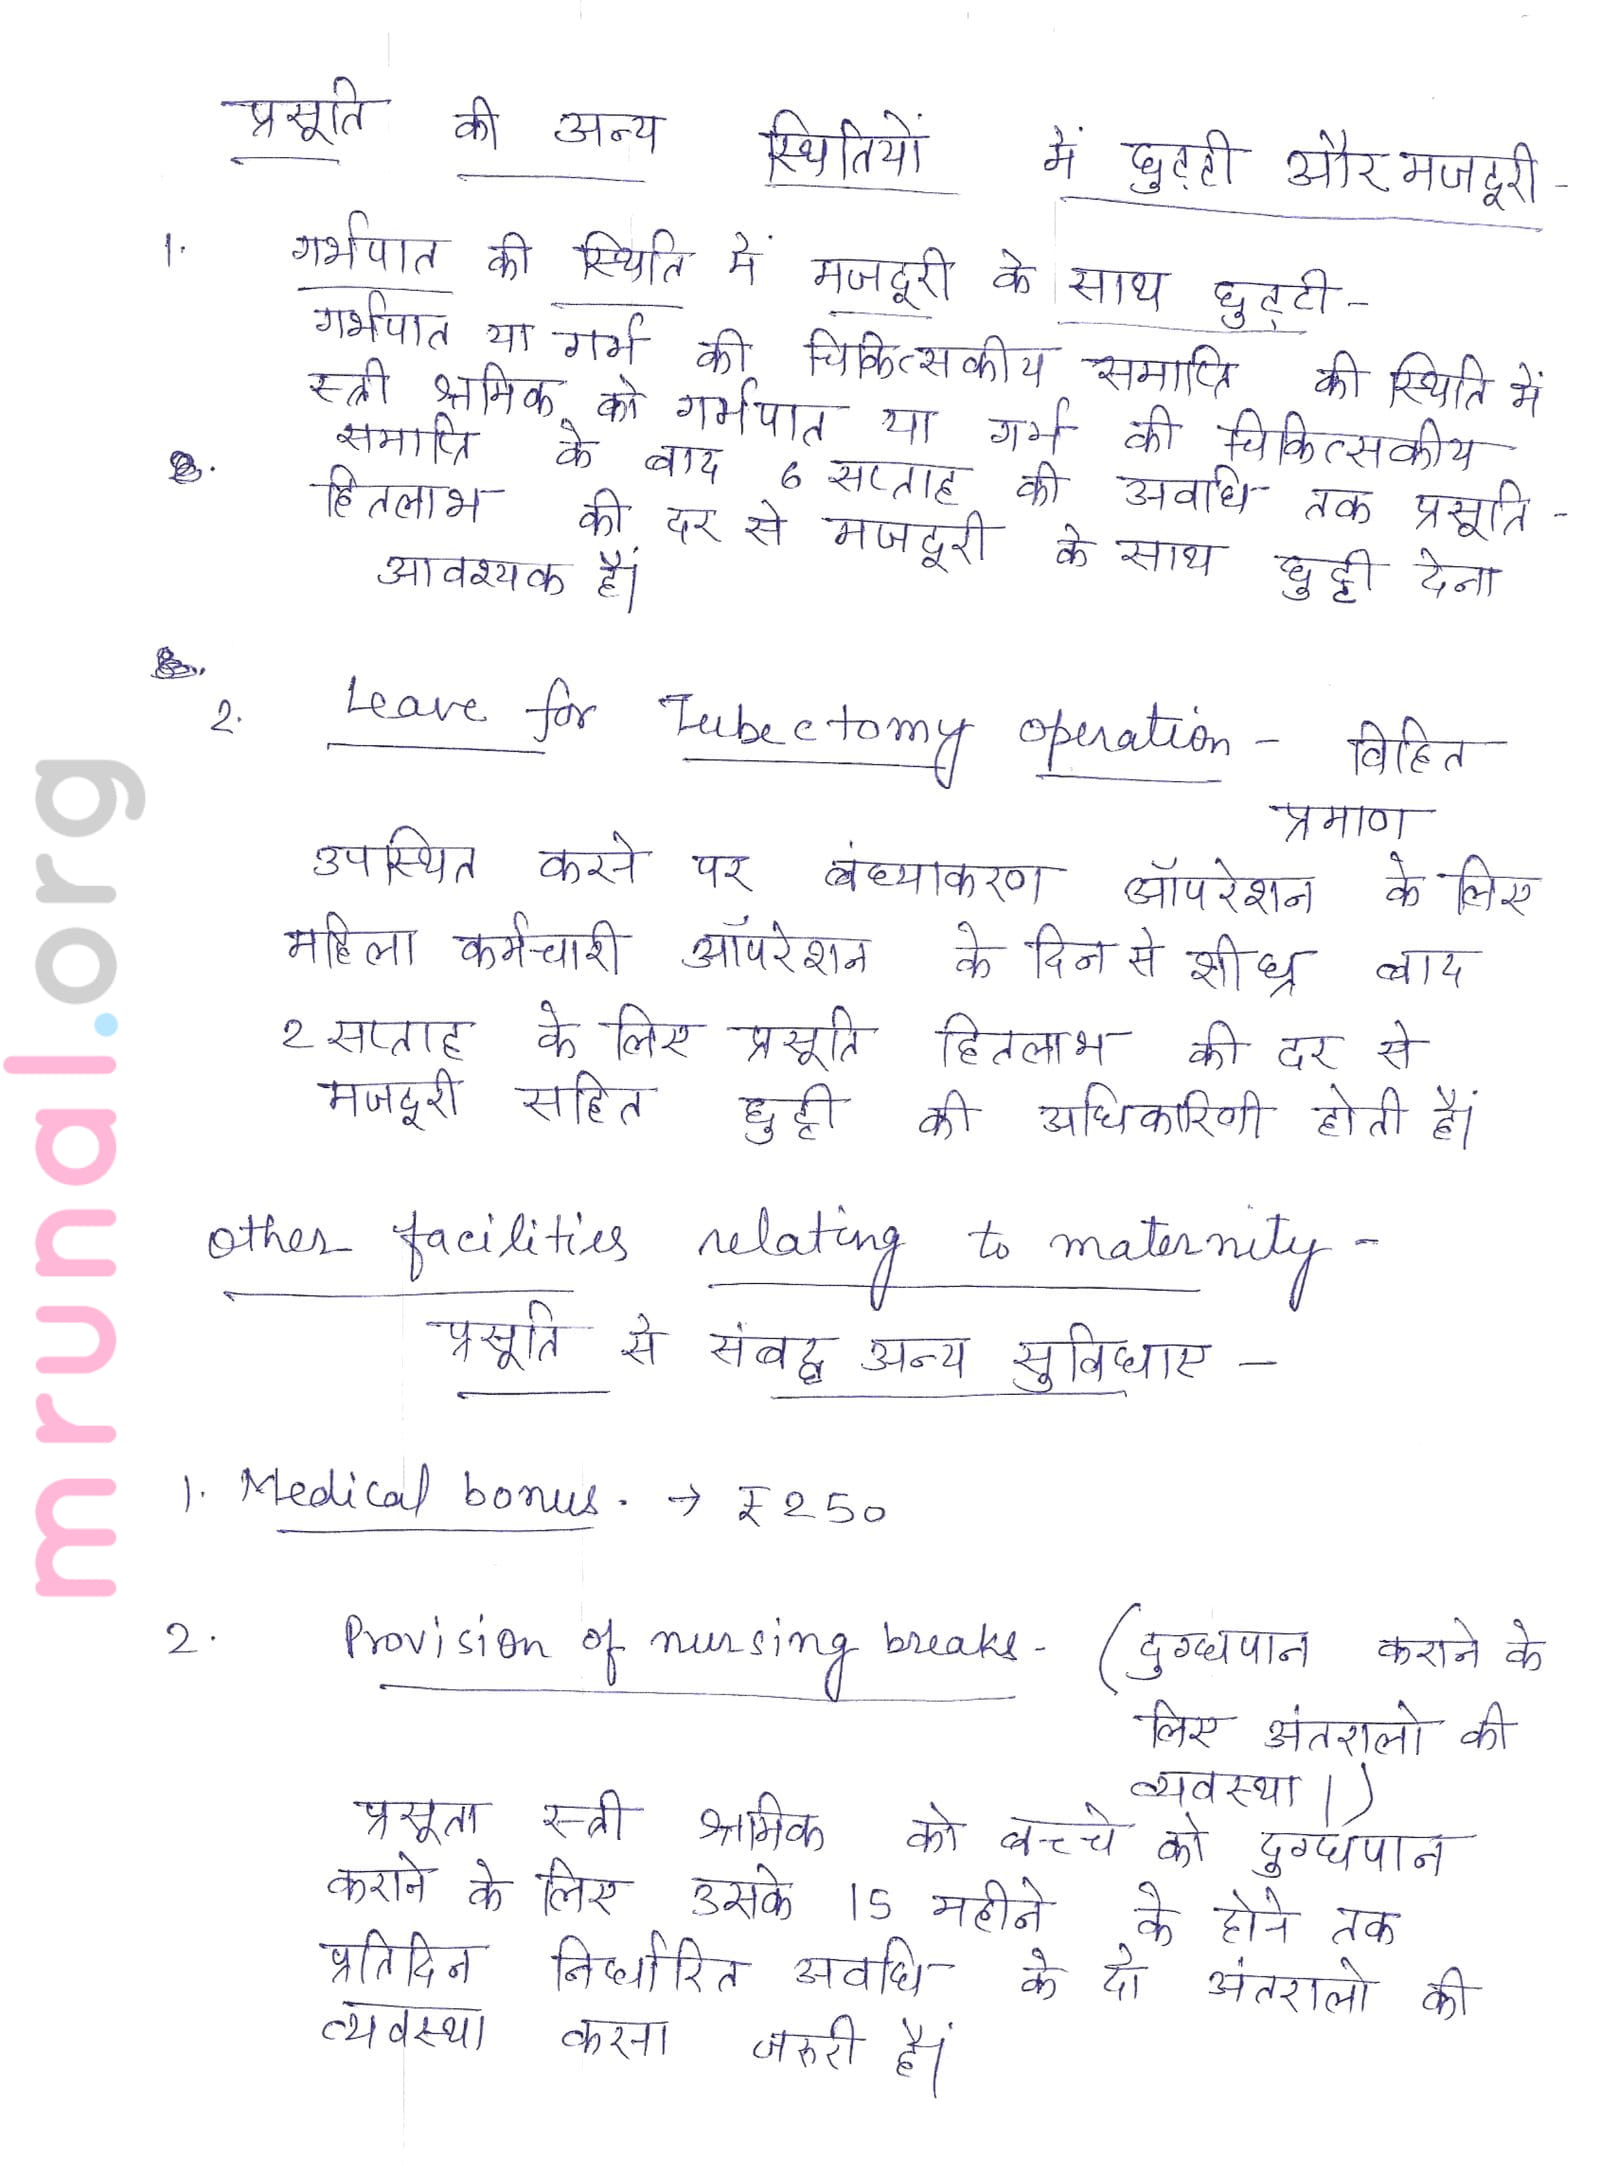 प्रसूति की अन्य स्थितियों में छुट्टी और मजदूरी -
1. गर्भपात की स्थिति में मजदूरी के साथ छुट्टी -
गर्भपात या गर्भ की चिकित्सकीय समाप्ति की स्थिति में
स्त्री श्रमिक को गर्भपात या गर्भ की चिकित्सकीय
समाप्ति के बाद 6 सप्ताह की अवधि तक प्रसूति -
हितलाभ की दर से मजदूरी के साथ छुट्टी देना
आवश्यक हैं।
2. Leave for Tubectomy operation - विहित
प्रमाण
उपस्थित करने पर बंध्याकरण ऑपरेशन के लिए
महिला कर्मचारी ऑपरेशन के दिन से शीघ्र बाद
2 सप्ताह के लिए प्रसूति हितलाभ की दर से
मजदूरी सहित छुट्टी की अधिकारिणी होती हैं।
other facilities relating to maternity -
प्रसूति से संबद्ध अन्य सुविधाए -
1. Medical bonus. → ₹250
2. Provision of nursing breaks - (दुग्धपान कराने के
लिए अंतरालो की
व्यवस्था।)
प्रसूता स्त्री श्रमिक को बच्चे को दुग्धपान
कराने के लिए उसके 15 महीने के होने तक
प्रतिदिन निर्धारित अवधि के दो अंतरालो की
व्यवस्था करना जरूरी हैं।
mrunal.org